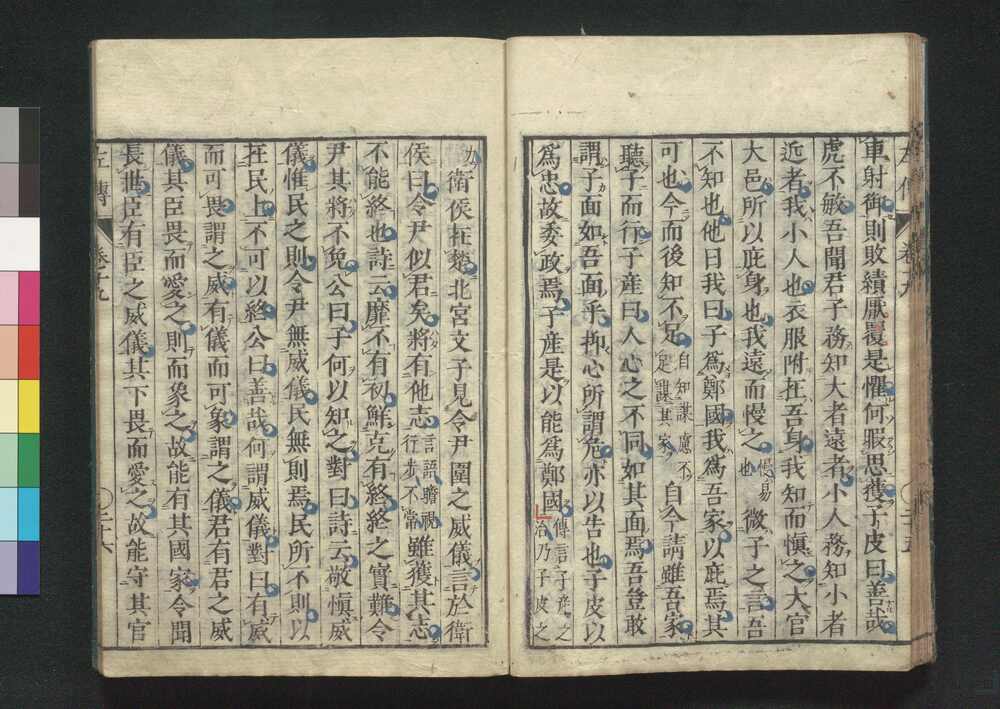 車射御則敗績厭覆是懼何暇思獲子皮曰善哉
虎不敏吾聞君子務知大者遠者小人務知小者
近者我小人也衣服附在吾身我知而慎之大官
大邑所以庇身也我遠而慢之慢易也微子之言吾
不知也他日我曰子爲鄭國我爲吾家以庇焉其
可也今而後知不足自知謀慮不足謀其家自今請雖吾家
聽子而行子産曰人心之不同如其面焉吾豈敢
謂子面如吾面乎抑心所謂危亦以告也子皮以
爲忠故委政焉子産是以能爲鄭國傳言子産之治乃子皮之
力衛侯在楚北宮文子見令尹圍之威儀言於衛
侯曰令尹似君矣將有他志言語瞻視行歩不常雖獲其志
不能終也詩云靡不有初鮮克有終終之實難令
尹其將不免公曰子何以知之對曰詩云敬慎威
儀惟民之則令尹無威儀民無則焉民所不則以
在民上不可以終公曰善哉何謂威儀對曰有威
而可畏謂之威有儀而可象謂之儀君有君之威
儀其臣畏而愛之則而象之故能有其國家令聞
長世臣有臣之威儀其下畏而愛之故能守其官
左傳 卷十九 二十六